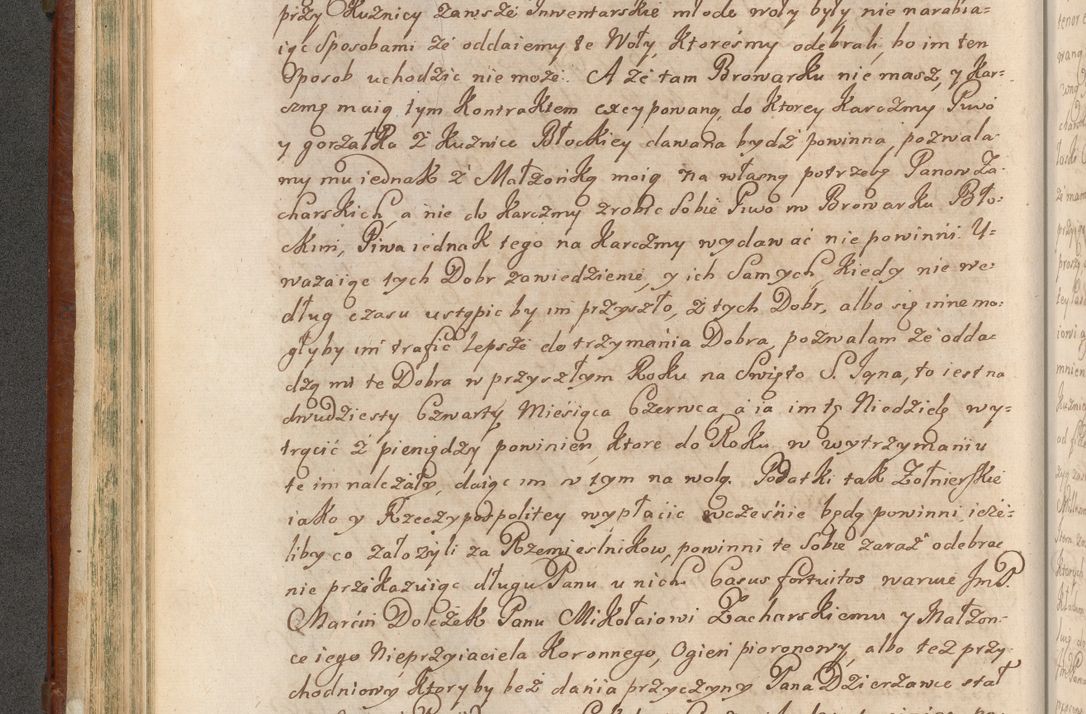 przy Kuznicy zawsze Inwentarskie młode woły były nie narabia=
iąc Sposobami że oddaiemy te Woły, Ktoreśmy odebrali, bo im ten
Sposob uchodzic nie może. A że tam Browarku nie masz, y Kar=
czmę maią tym Kontraktem excypowaną, do Ktorey Karczmy Piwo
y gorzałka z Kuznice Błockiey dawana bydz powinna, pozwala=
my mu iednak z Małzonką moią na własną potrzebę Panow Za=
charskich, a nie do Karczmy zrobic Sobie Piwo w Browarku Bło=
ckim, Piwa iednak tego na Karczmy wydawać nie powinni. U=
wazaiąc tych Dobr zawiedzienie, y ich Samych, Kiedy nie we=
dług czasu ustąpic by im przyszło, z tych Dobr, albo się inne mo=
głyby im trafic lepsze do trzymania Dobra, pozwalam że odda=
dzą mi te Dobra w przyszłym Roku na Swięto S. Jana, to iest na
dwudziesty Czwarty Miesiąca Czerwca, a ia im tę Niedzielę wy=
trącić z pieniędzy powinien, Ktore do Roku w wytrzymaniu
te im nalezały, daiąc im w tym na wolą. Podatki tak Zołnierskie
iako y Rzeczypospolitey wypłacic wcześnie będą powinni, ieże=
liby co założyli za Rzemieslnikow, powinni te Sobie zaraz odebrac
nie przekazuiąc długu Panu u nich. Casus fortuitos waruie JmP.
Marcin Dolczek Panu Mikołaiowi Zacharskiemu y Małzon=
ce iego Nieprzyiaciela Koronnego, Ogień pioronowy, albo tez przy=
chodniowy, Ktory by bez dania przyczyny Pana Dzierzawce stał